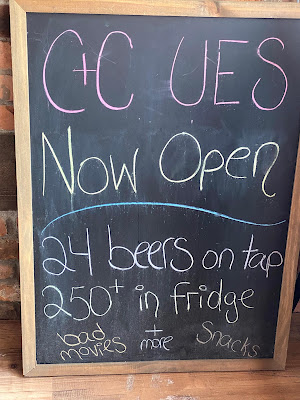 C+C UES
Now Open
24 beers on tap
250+ in fridge
bad movies + more Snacks